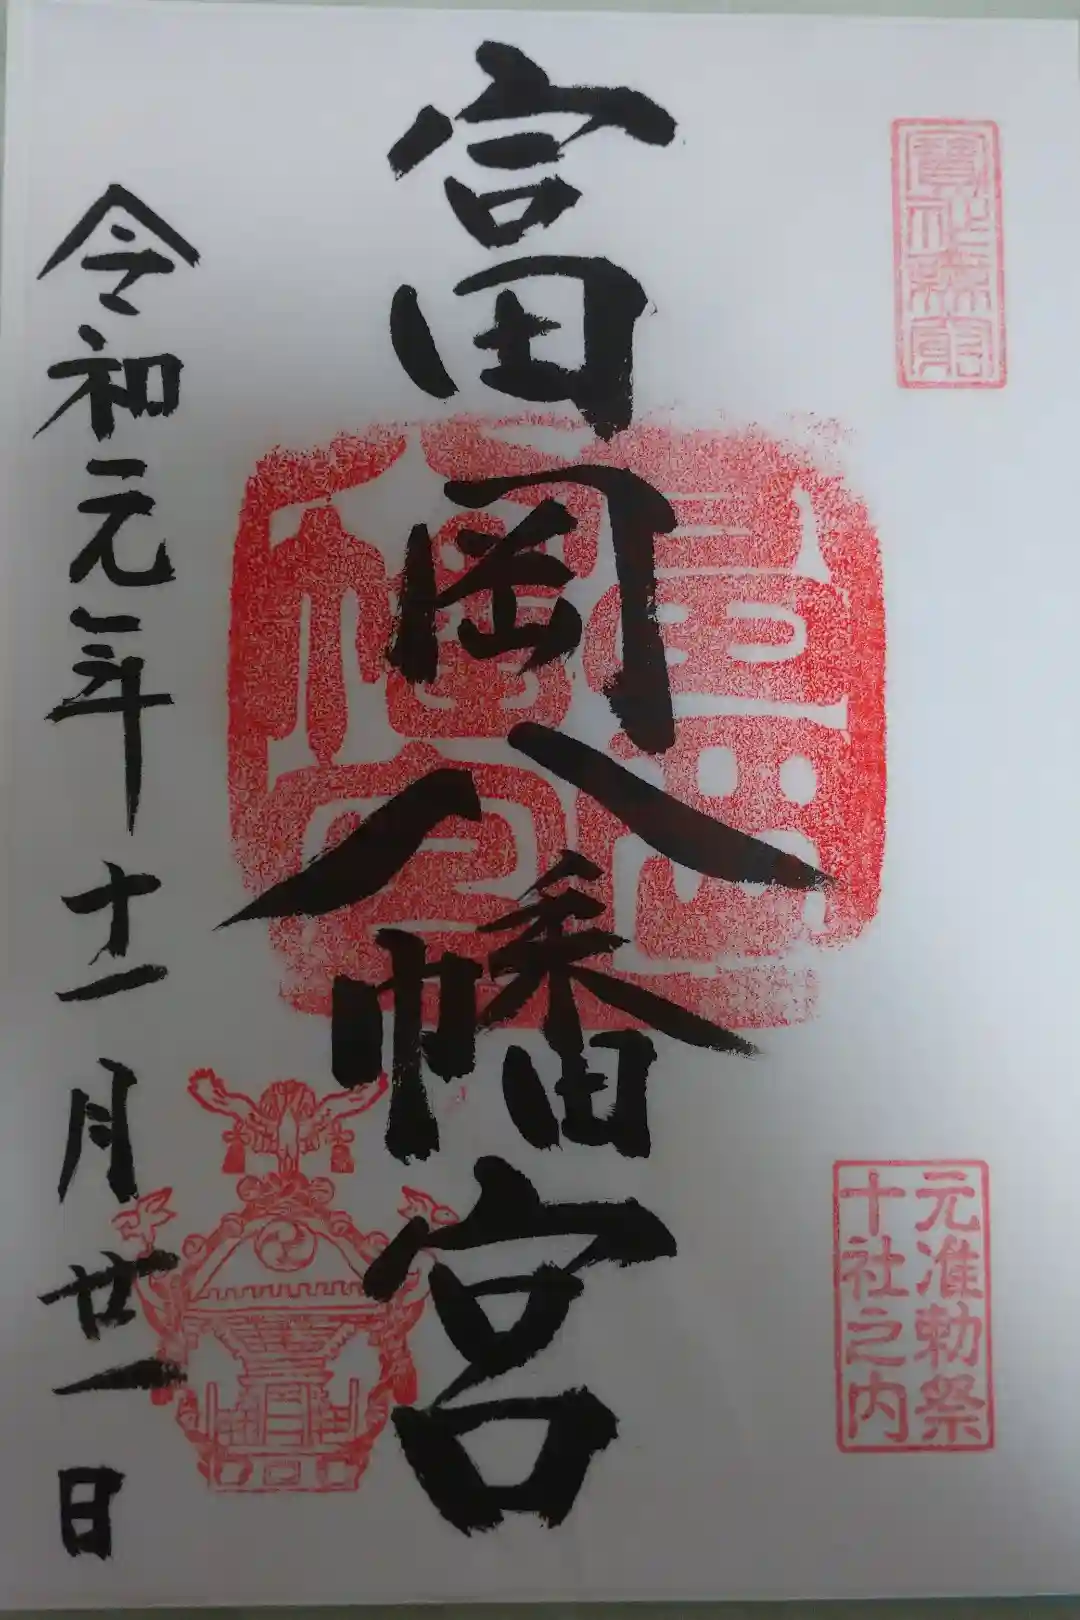 富岡八幡宮
元准勅祭
十社之内
令和元年十一月廿一日